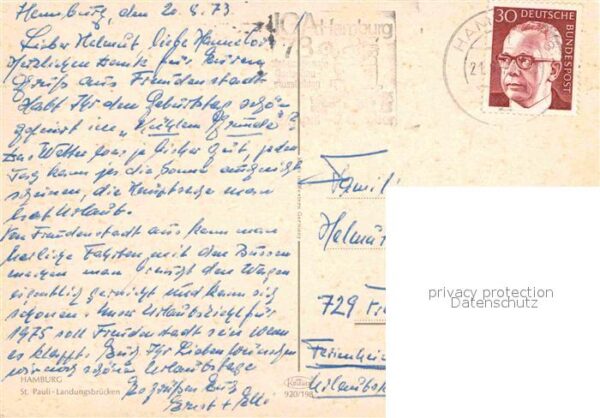 Hamburg, den 20.8.73
Lieber Helmut, liebe Hannelore
Herzlichen Dank für Euren
Gruß aus Freudenstadt
Habt Ihr den Geburtstag schön
gefeiert im „Kühlen Grunde"?
Das Wetter war ja bisher gut, jeden
Tag kann ja die Sonne auch nicht
scheinen, die Hauptsache man
hat Urlaub.
Von Freudenstadt aus kann man
herliche Fahrten mit den Bussen
machen man braucht den Wagen
eigentlich garnicht und kann sich
schonen. Unser Urlaubsziel für
1975 soll Freudenstadt sein wenn
es klappt. Euch Ihr Lieben wünschen
wir noch schöne Urlaubstage
Es grüßen Euch
Ernst +
HAMBURG
St. Pauli - Landungsbrücken
IGA Hamburg
73
HAMB
21.
30 DEUTSCHE
BUNDESPOST
Famili
Helmut
729 Fr
Ferienheim
Urlaubs
Krüger
920/198
privacy protection
Datenschutz